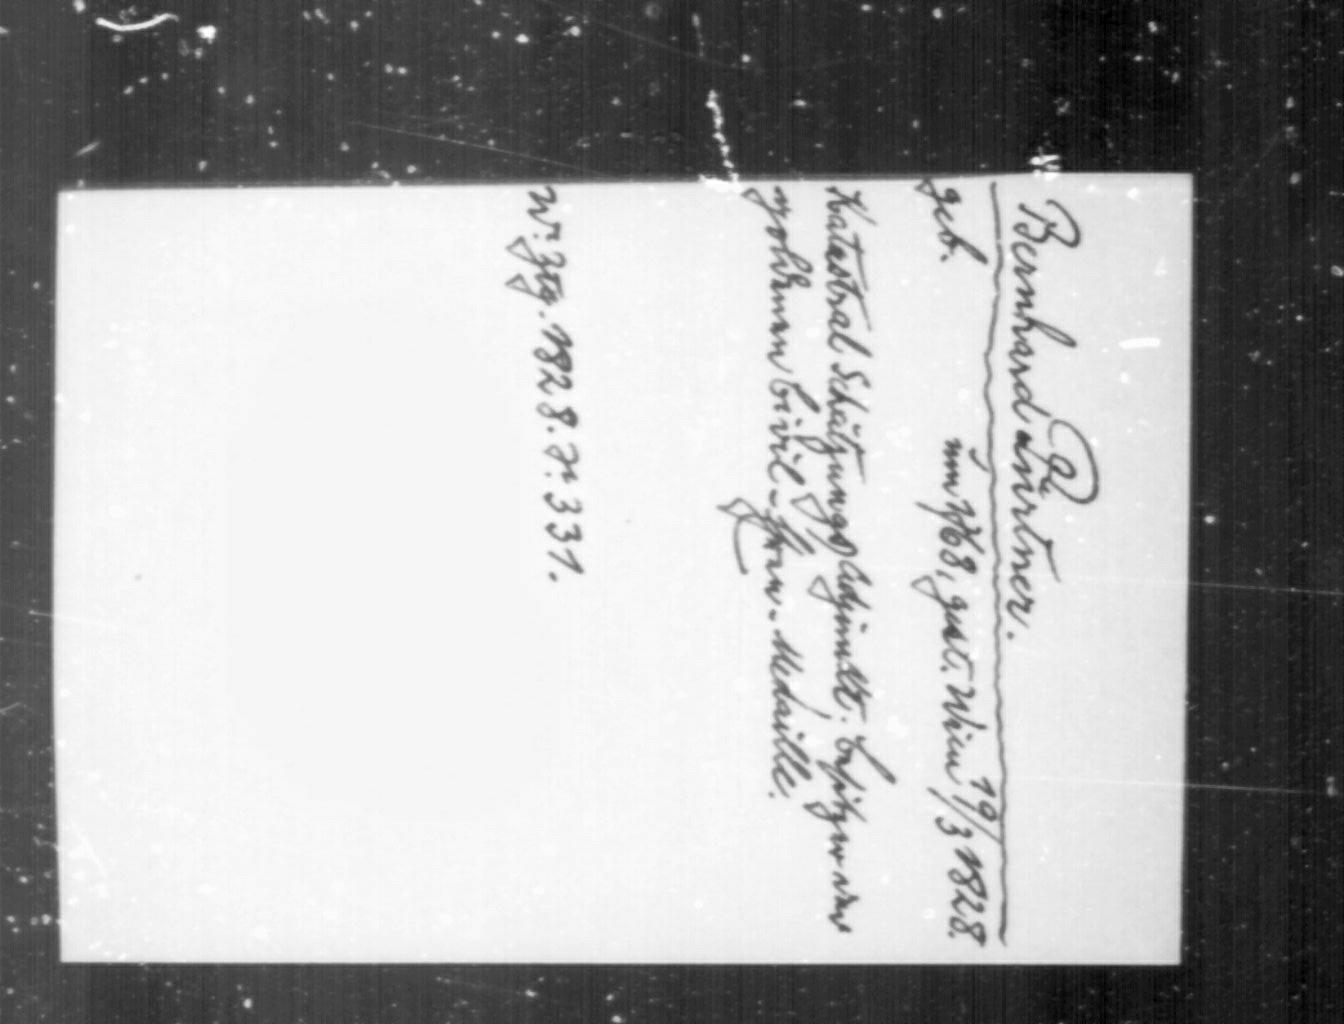 Bernhard Partner.
geb. um 1768, gest. Wien 19/3 1828.
Katastral Schätzungs Adjunkt. Besitzer der
goldenen Civil-Ehren-Medaille.
Wr. Ztg. 1828. N. 331.